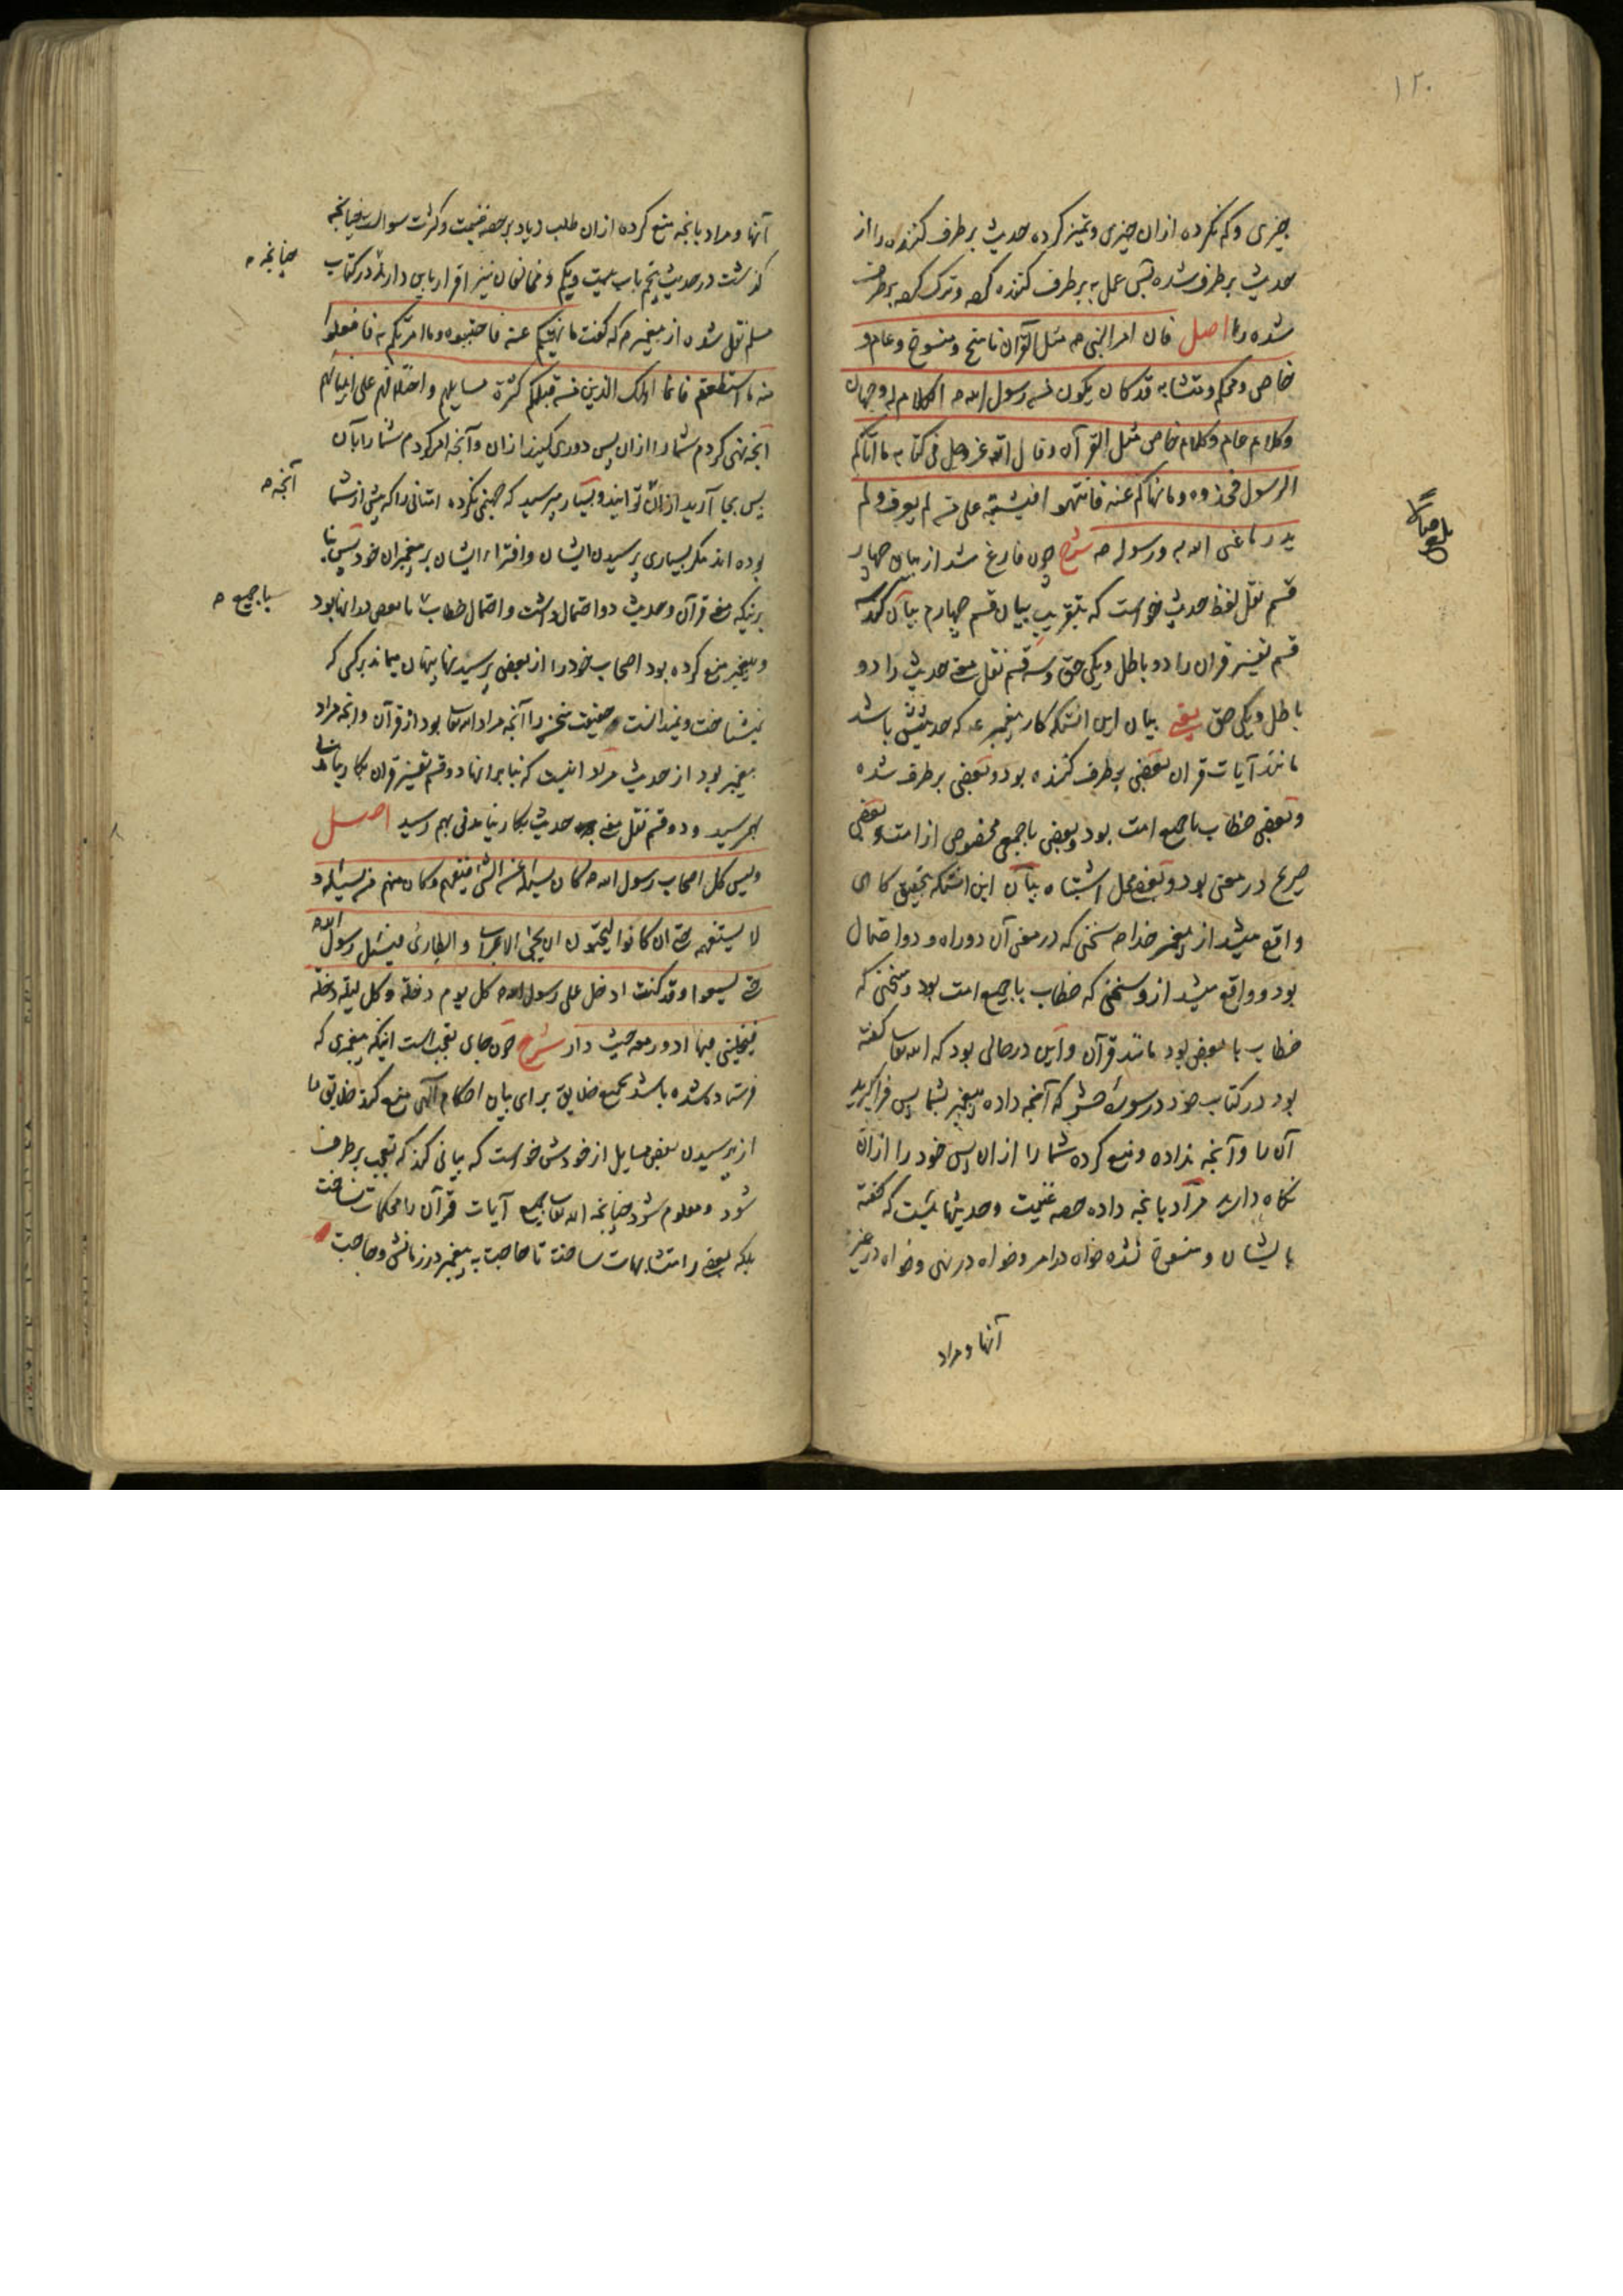 ۱۲۰
چیزی و کم نکرده ازان چیزی و تمیز کرده حدیث برطرف کننده را از
حدیث برطرف شده پس عمل به برطرف کننده کرده و ترک کرده برطرف
شده را اصل فان امر النبی ص مثل القرآن ناسخ و منسوخ و عام و
خاص و محکم و متشابه قد کان یکون من رسول الله ص الکلام له وجهان
و کلام عام و کلام خاص مثل القرآن و قال الله عز و جل فی کتابه ما آتاکم
الرسول فخذوه و ما نهاکم عنه فانتهوا فیشتبه علی من لم یعرف و لم
یدر ما عنی الله به و رسوله ص شرح چون فارغ شد از بیان چهار
قسم نقل لفظ حدیث خواست که بتقریب بیان قسم چهارم بیان کند سه
قسم تفسیر قران را دو باطل و یکی حق و سه قسم نقل معنی حدیث را دو
باطل و یکی حق یعنی بیان این آنستکه کار پیغمبر ع که حدیثش باشد
مانند آیات قران بعضی برطرف کننده بود و بعضی برطرف شده
و بعضی خطاب با جمیع امت بود و بعضی با جمعی مخصوص از امت و بعضی
صریح در معنی بود و بعضی محل اشتباه بیان این آنستکه بتحقیق گاهی
واقع میشد از پیغمبر خدا ص سخنی که در معنی آن دو راه و دو احتمال
بود و واقع میشد ازو سخنی که خطاب با جمیع امت بود و سخنی که
خطاب با بعضی بود مانند قرآن و این در حالی بود که الله تعالی گفته
بود در کتاب خود در سوره حشر که آنچه داده پیغمبر بشما پس فرا گیرید
آن را و آنچه نداده و منع کرده شما را ازان پس خود را ازان
نگاه دارید مراد بآنچه داده حصه غنیمت و حدیثهائیست که گفته
بایشان و منسوخ نشده خواه در امر و خواه در نهی و خواه در غیر
آنها و مراد
آنها و مراد بآنچه منع کرده ازان طلب زیاد بر حصه غنیمت و کثرت سوالست چنانچه
گذشت در حدیث پنجم باب بیست و یکم و مخالفان نیز اقرار باین دارند در کتاب
چنانچه ص
مسلم نقل شده از پیغمبر ص که گفت ما نهیتکم عنه فاجتنبوه و ما امرتکم به فافعلوا
منه ما استطعتم فانما اهلک الذین من قبلکم کثرة مسایلهم و اختلافهم علی انبیائهم
آنچه نهی کردم شما را ازان پس دوری کنید ازان و آنچه امر کردم شما را بآن
پس بجا آرید ازان آنچه توانید و بسیار مپرسید که جهنمی نکرده امتانی را که پیش از شما
آنچه ص
بوده اند مگر بسیاری پرسیدن ایشان و افترای ایشان بر پیغمبران خود پس بنا
بر اینکه معنی قرآن و حدیث دو احتمال داشت و احتمال خطاب با بعضی در آنها بود
با جمیع ص
و پیغمبر منع کرده بود اصحاب خود را از بعضی پرسیدنها پنهان میماند بر کسی که
نمیشناخت و نمیدانست حقیقت سخن را آنچه مراد الله تعالی بود از قرآن و آنچه مراد
پیغمبر بود از حدیث مراد اینست که بنا برانها دو قسم تفسیر قران بکار نیامدنی
بهم رسید و دو قسم نقل معنی حدیث بکار نیامدنی بهم رسید اصل
و لیس کل اصحاب رسول الله ص کان یسئله عن الشئ فیفهم و کان منهم من یسئله و
لا یستفهمه حتی ان کانوا لیحبون ان یجئ الاعرابی و الطاری فیسئل رسول الله ص
حتی یسمعوا و قد کنت ادخل علی رسول الله ص کل یوم دخلة و کل لیلة دخلة
فیخلینی فیها ادور معه حیث دار شرح چون جای تعجب است اینکه پیغمبری که
فرستاده شده باشد بجمیع خلایق برای بیان احکام الهی منع کند خلایق را
از پرسیدن بعض مسایل از خودش خواست که بیانی کند که تعجب برطرف
شود و معلوم شود چنانچه الله تعالی جمیع آیات قرآن را محکمات نساخت
بلکه بعضی را متشابهات ساخت تا حاجت به پیغمبر در زمانش و حاجت